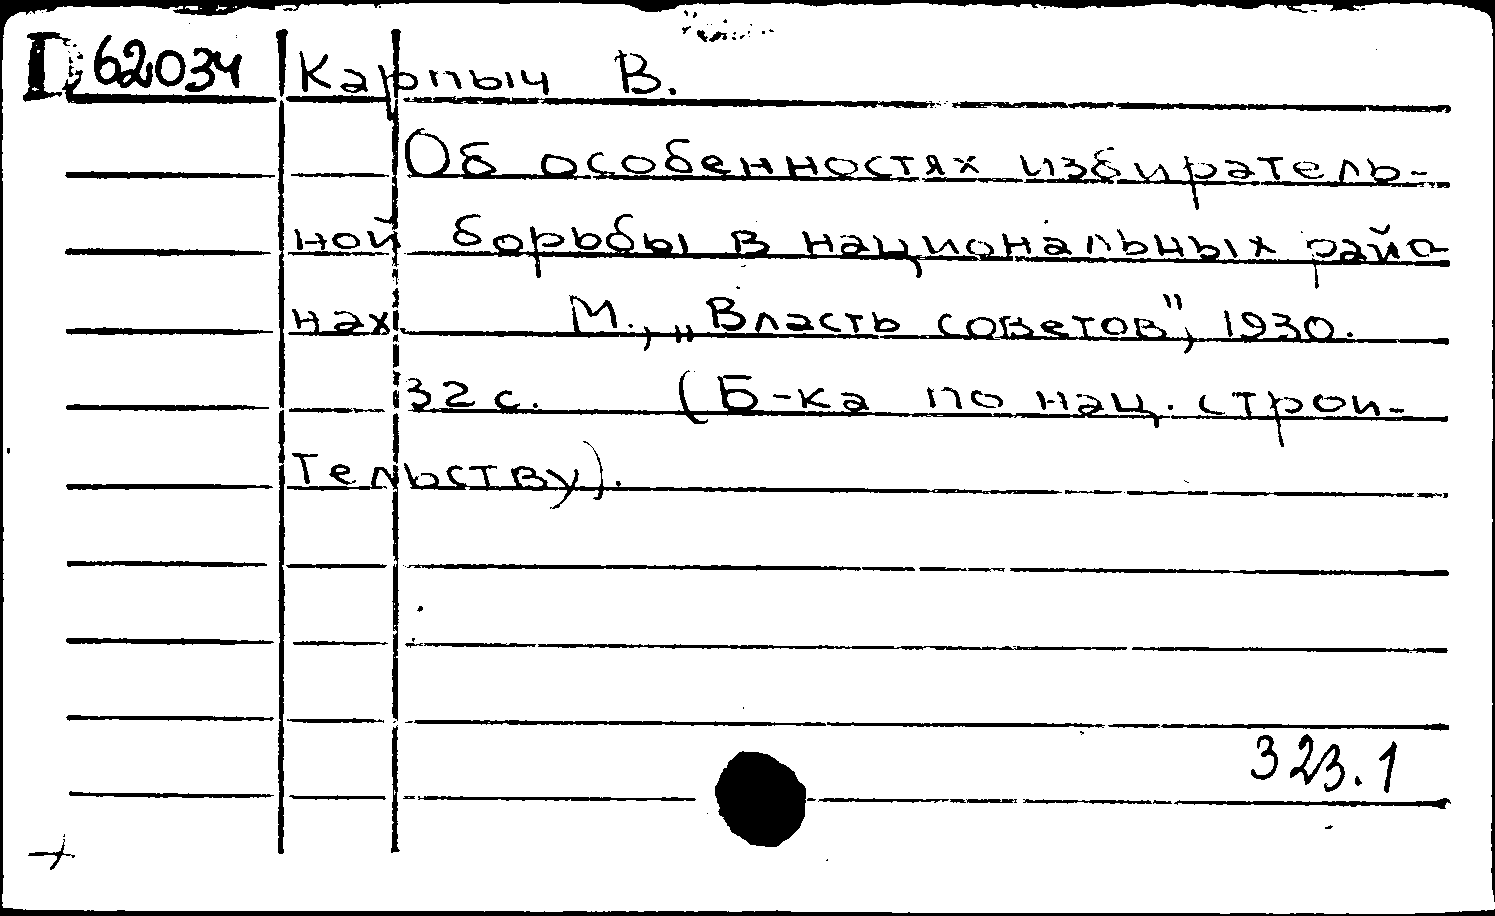 D 62034 Карпыч В.
Об особенностях избиратель-
ной борьбы в национальных райо
нах М., „Власть советов", 1930.
32 с. (Б-ка по нац. строи-
тельству).
323.1